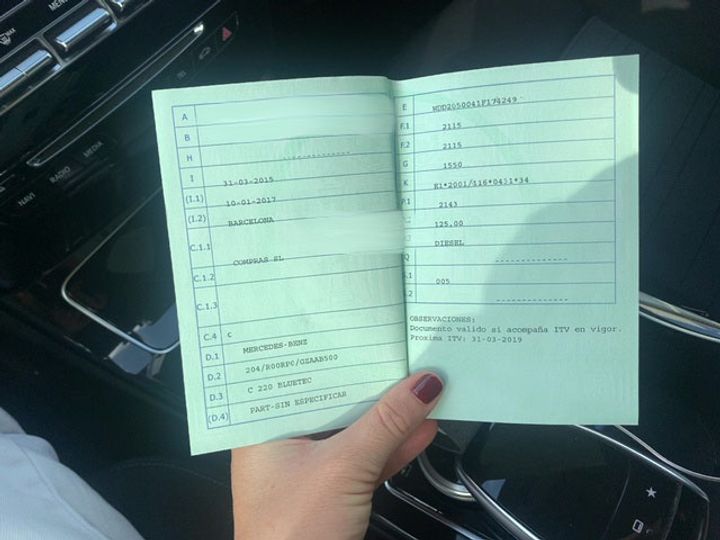 MENU
MAX
NAVI
RADIO
MEDIA
A
B
H
I 31-03-2015
(I.1) 10-01-2017
(I.2) BARCELONA
C.1.1
COMPRAS SL
C.1.2
C.1.3
C.4 C
D.1 MERCEDES-BENZ
D.2 204/R00RPC/GZAAB500
D.3 C 220 BLUETEC
(D.4) PART-SIN ESPECIFICAR
E WDD2050041F174249
F.1 2115
F.2 2115
G 1550
K E1*2001/116*0431*34
P.1 2143
125.00
DIESEL
Q
S.1 005
S.2
OBSERVACIONES:
Documento valido si acompaña ITV en vigor.
Proxima ITV: 31-03-2019